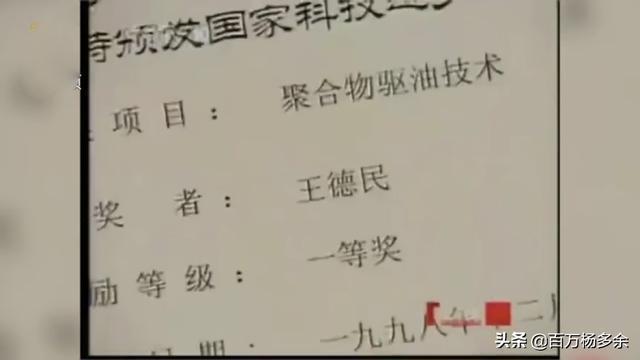 特颁发国家科技进步
项目: 聚合物驱油技术
奖者: 王德民
励等级: 一等奖
日期: 一九九八年十二月
头条@百万杨多余